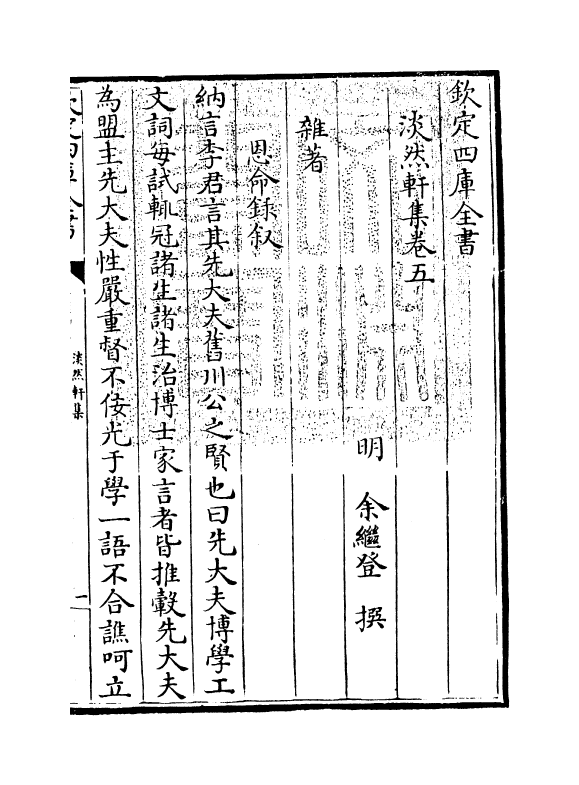 欽定四庫全書
淡然軒集卷五
明　余繼登　撰
雜著
恩命録叙
納言李君言其先大夫舊川公之賢也曰先大夫博學工
文詞每試輒冠諸生諸生治博士家言者皆推轂先大夫
為盟主先大夫性嚴重督不佞光于學一語不合譙呵立
欽定四庫全書
淡然軒集
一